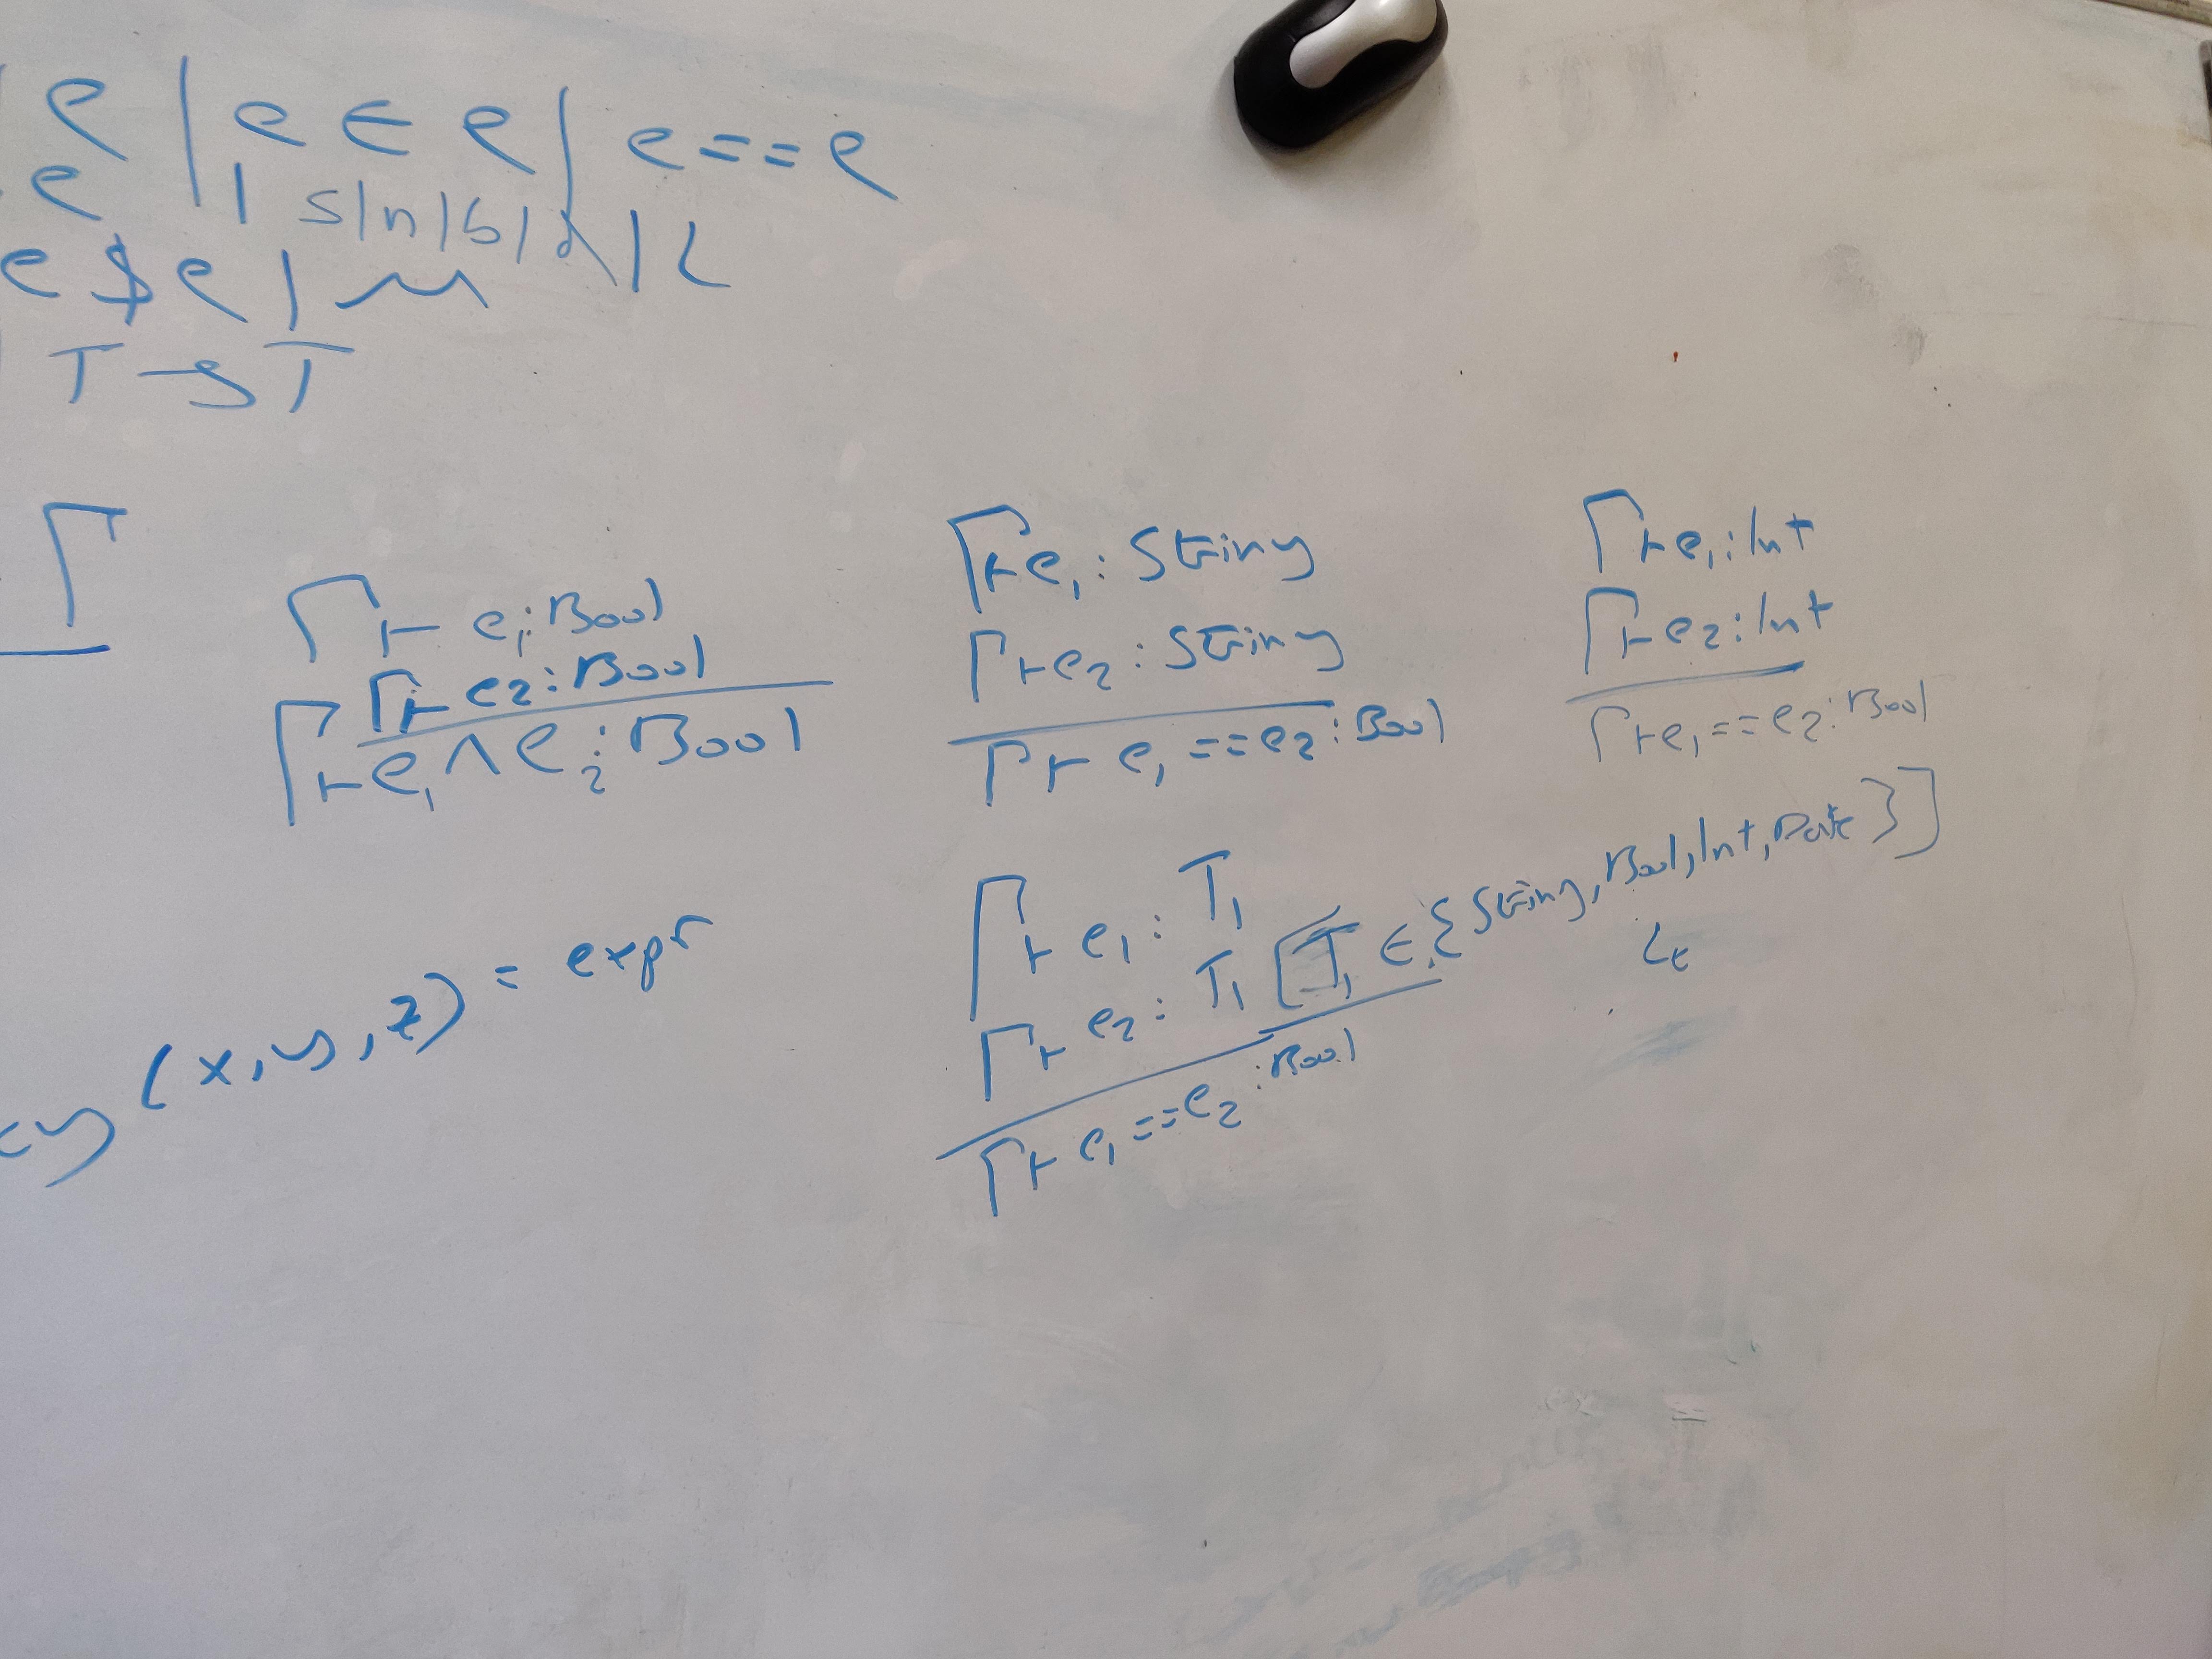 e | e ∈ e | e == e
e | s | n | b | d | L
e $ e |
T → T
Γ
Γ ⊢ e₁ : Bool
Γ ⊢ e₂ : Bool
Γ ⊢ e₁ ∧ e₂ : Bool
Γ ⊢ e₁ : String
Γ ⊢ e₂ : String
Γ ⊢ e₁ == e₂ : Bool
Γ ⊢ e₁ : Int
Γ ⊢ e₂ : Int
Γ ⊢ e₁ == e₂ : Bool
(x, y, z) = expr
Γ ⊢ e₁ : T₁
Γ ⊢ e₂ : T₁ [T₁ ∈ {String, Bool, Int, Date}]
Γ ⊢ e₁ == e₂ : Bool